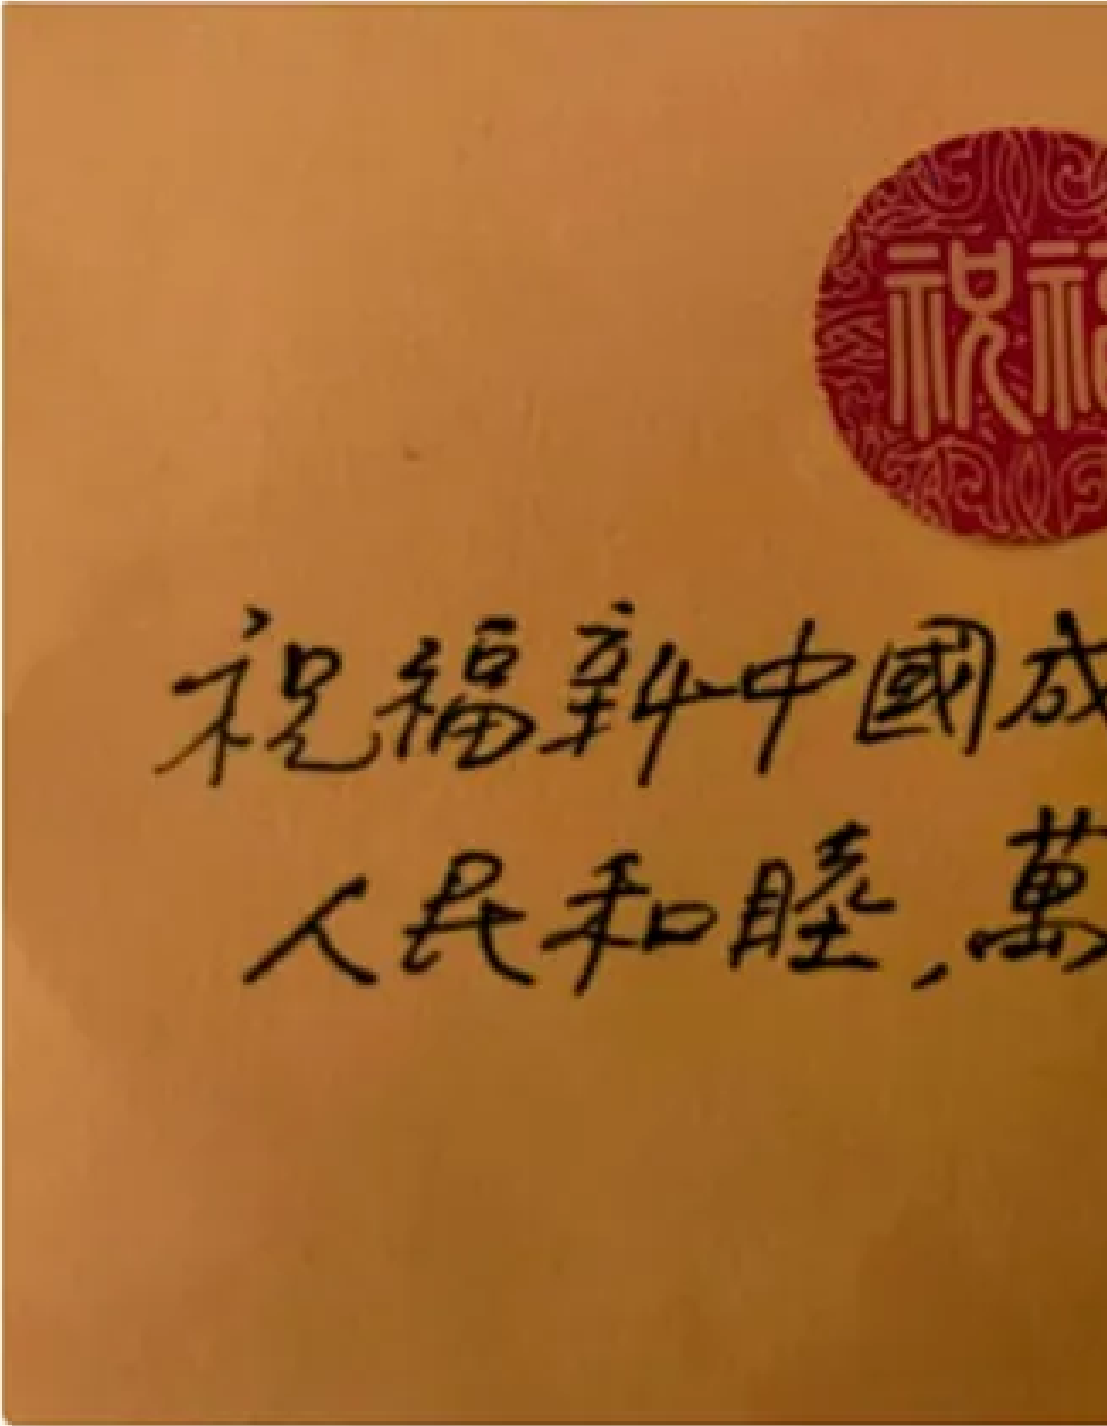 祝
祝福新中國成
人民和睦,萬